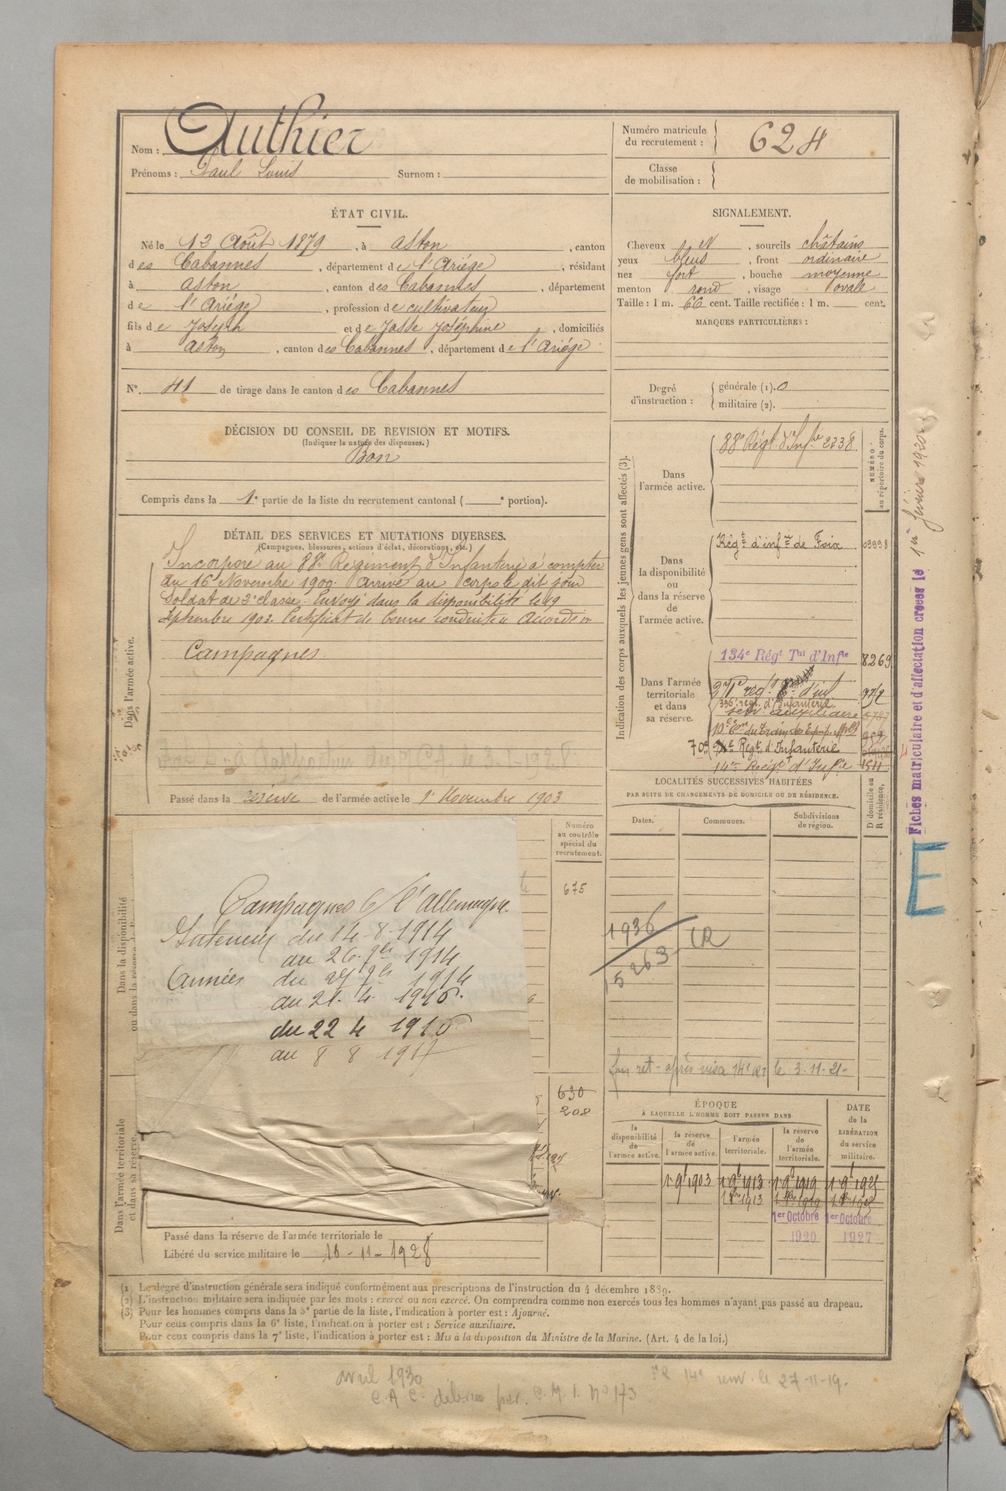 Nom : Authier
Prénoms : Paul Louis Surnom :
Numéro matricule du recrutement : 624
Classe de mobilisation :
ÉTAT CIVIL.
Né le 12 Août 1879, à Aston, canton
des Cabannes, département de l'Ariége, résidant
à Aston, canton des Cabannes, département
de l'Ariége, profession de cultivateur
fils de Joseph et de Jasse Joséphine, domiciliés
à Aston, canton des Cabannes, département de l'Ariége.
N° 41 de tirage dans le canton des Cabannes
SIGNALEMENT.
Cheveux N, sourcils châtains
yeux bleus, front ordinaire
nez fort, bouche moyenne
menton rond, visage ovale
Taille : 1 m. 66 cent. Taille rectifiée : 1 m. cent.
MARQUES PARTICULIÈRES :
Degré d'instruction : générale (1). 0
militaire (2).
DÉCISION DU CONSEIL DE REVISION ET MOTIFS.
(Indiquer la nature des dispenses.)
Bon
Compris dans la 1e partie de la liste du recrutement cantonal ( e portion).
DÉTAIL DES SERVICES ET MUTATIONS DIVERSES.
(Campagnes, blessures, actions d'éclat, décorations, etc.)
Dans l'armée active.
Incorporé au 88e Régiment d'Infanterie à compter
du 16 Novembre 1900. Arrivé au corps le dit jour
Soldat de 2e classe. Envoyé dans la disponibilité le 19
Septembre 1903. Certificat de bonne conduite Accordé
Campagnes
Passé dans la réserve de l'armée active le 1er Novembre 1903
Indication des corps auxquels les jeunes gens sont affectés (3).
NUMÉRO au répertoire du corps.
Dans l'armée active.
88e Régt d'Infie 2338
Dans la disponibilité ou dans la réserve de l'armée active.
Régt d'infie de Foix 03998
Dans l'armée territoriale et dans sa réserve.
134e Régt Tal d'Infie 8269
336e régt d'Infanterie
serv. auxiliaire
Régt d'Infanterie
14e Régt d'Infie 1511
LOCALITÉS SUCCESSIVES HABITÉES
PAR SUITE DE CHANGEMENTS DE DOMICILE OU DE RÉSIDENCE.
Dates. Communes. Subdivisions de région. D domicile ou R résidence.
Dans la disponibilité
Numéro au contrôle spécial du recrutement.
675
Campagnes c/ l'Allemagne.
Intérieur du 14-8-1914
au 26 9bre 1914
Années du 27 9bre 1914
au 21. 4. 1916.
du 22 4 1916
au 8 8 1917
1936
5263
CR
le 3-11-21-
630
208
Dans l'armée territoriale et dans sa réserve.
ÉPOQUE
À LAQUELLE L'HOMME DOIT PASSER DANS
la disponibilité de l'armée active.
la réserve de l'armée active.
l'armée territoriale.
la réserve de l'armée territoriale.
DATE de la LIBÉRATION du service militaire.
1er Octobre 1920
1er Octobre 1927
Passé dans la réserve de l'armée territoriale le
Libéré du service militaire le 10-11-1928
(1) Le degré d'instruction générale sera indiqué conformément aux prescriptions de l'instruction du 4 décembre 1889.
(2) L'instruction militaire sera indiquée par les mots : exercé ou non exercé. On comprendra comme non exercés tous les hommes n'ayant pas passé au drapeau.
(3) Pour les hommes compris dans la 5e partie de la liste, l'indication à porter est : Ajourné.
Pour ceux compris dans la 6e liste, l'indication à porter est : Service auxiliaire.
Pour ceux compris dans la 7e liste, l'indication à porter est : Mis à la disposition du Ministre de la Marine. (Art. 4 de la loi.)
avril 1930
C.A.C. délivrée par C.M.I. No 173
14e renv. le 27-11-19.
Fiches matriculaire et d'affectation créées le 1er février 1930
E